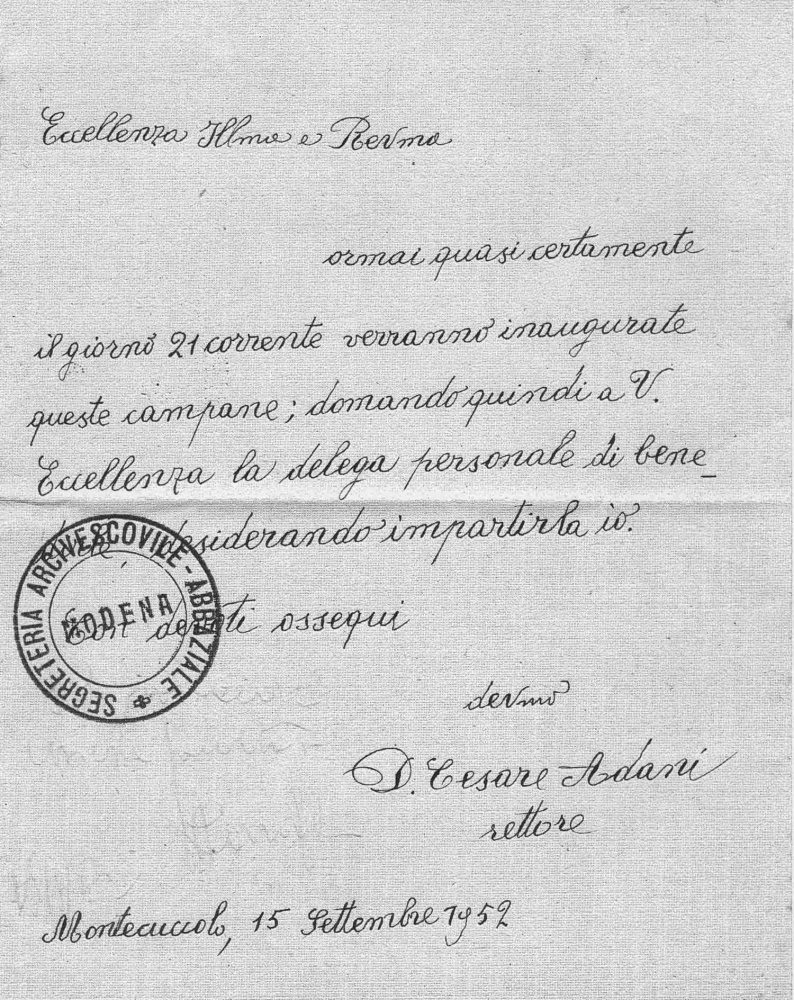 Eccellenza Illma e Revma
ormai quasi certamente
il giorno 21 corrente verranno inaugurate
queste campane; domando quindi a V.
Eccellenza la delega personale di bene_
desiderando impartirla io.
Con devoti ossequi
devmo
D. Cesare Adani
rettore
Montecuccolo, 15 Settembre 1952
SEGRETERIA ARCIVESCOVILE - ABBAZIALE
MODENA